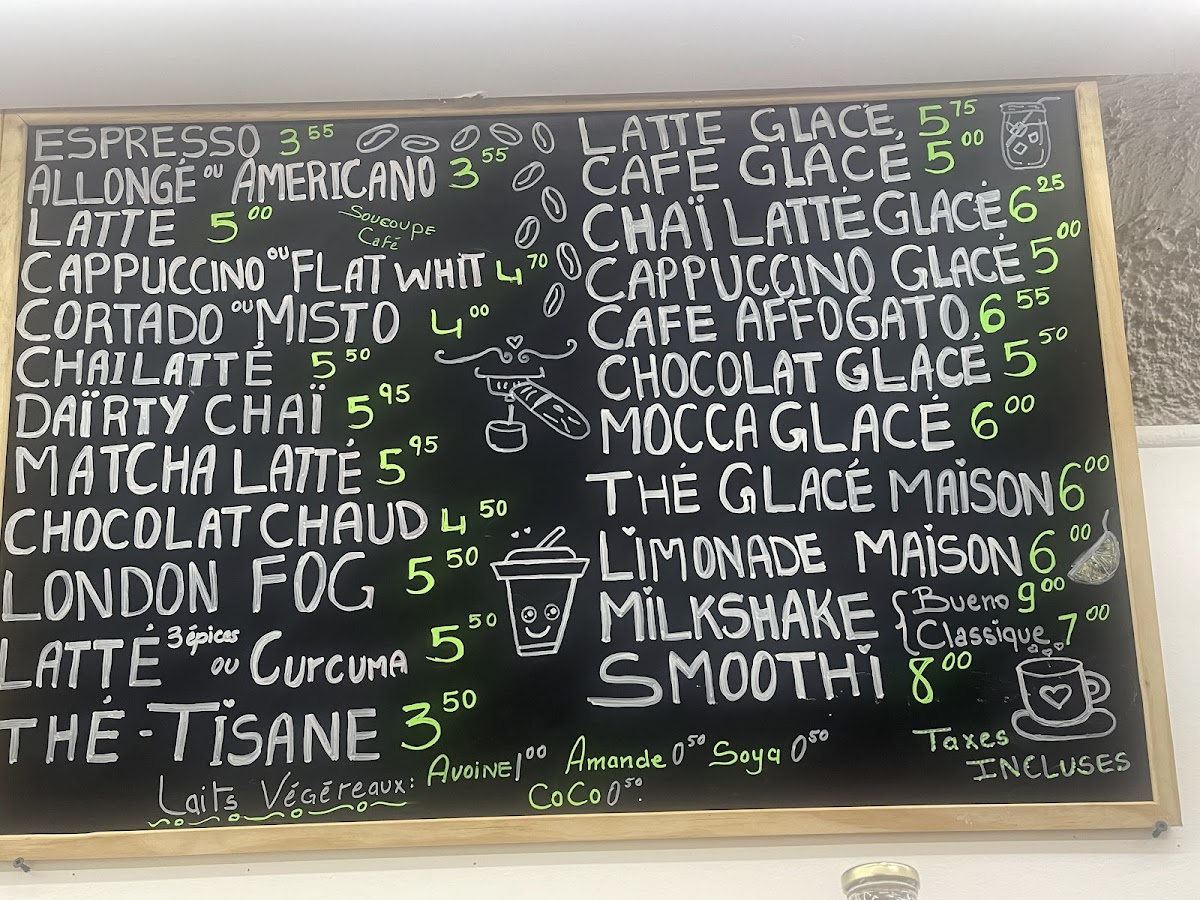 ESPRESSO 3.55
ALLONGÉ ou AMERICANO 3.55
LATTE 5.00
Soucoupe
Café
CAPPUCCINO ou FLAT WHIT 4.70
CORTADO ou MISTO 4.00
CHAI LATTÉ 5.50
DAÏRTY CHAÏ 5.95
MATCHA LATTÉ 5.95
CHOCOLAT CHAUD 4.50
LONDON FOG 5.50
LATTÉ 3 épices ou CURCUMA 5.50
THÉ-TISANE 3.50
LATTE GLACÉ 5.75
CAFE GLACÉ 5.00
CHAÏ LATTÉ GLACÉ 6.25
CAPPUCCINO GLACÉ 5.00
CAFE AFFOGATO 6.55
CHOCOLAT GLACÉ 5.50
MOCCA GLACÉ 6.00
THÉ GLACÉ MAISON 6.00
LIMONADE MAISON 6.00
MILKSHAKE { Bueno 9.00
Classique 7.00
SMOOTHI 8.00
Taxes
INCLUSES
Laits Végéreaux: AVOINE 1.00 Amande 0.50 Soya 0.50
COCO 0.50